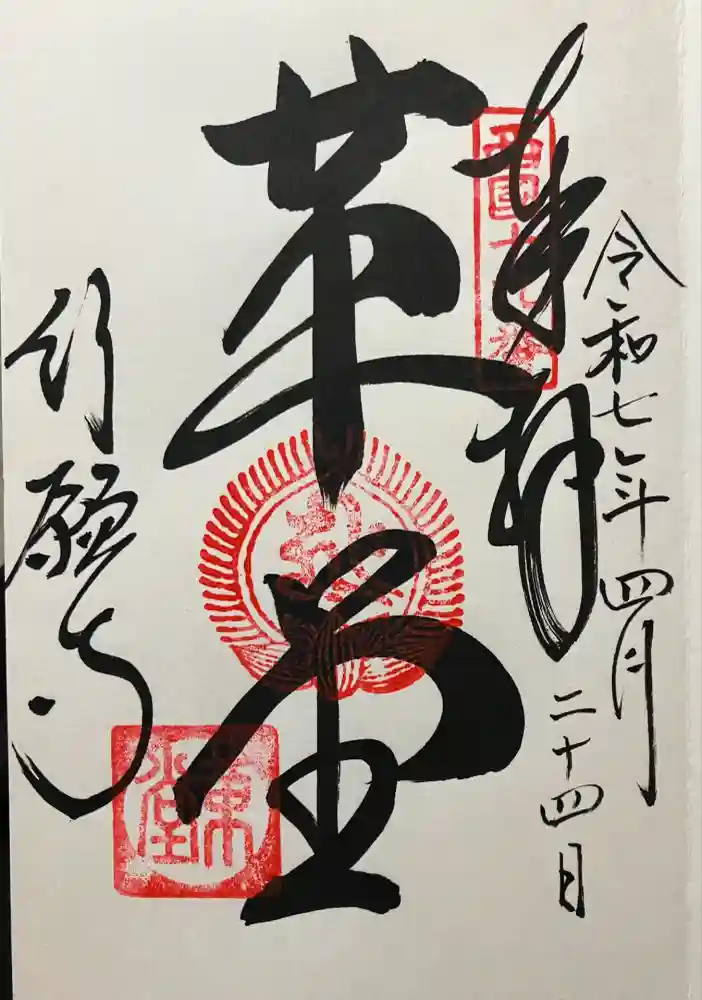 令和七年四月
二十四日
奉拝
西國十九番
革堂
行願寺
革堂